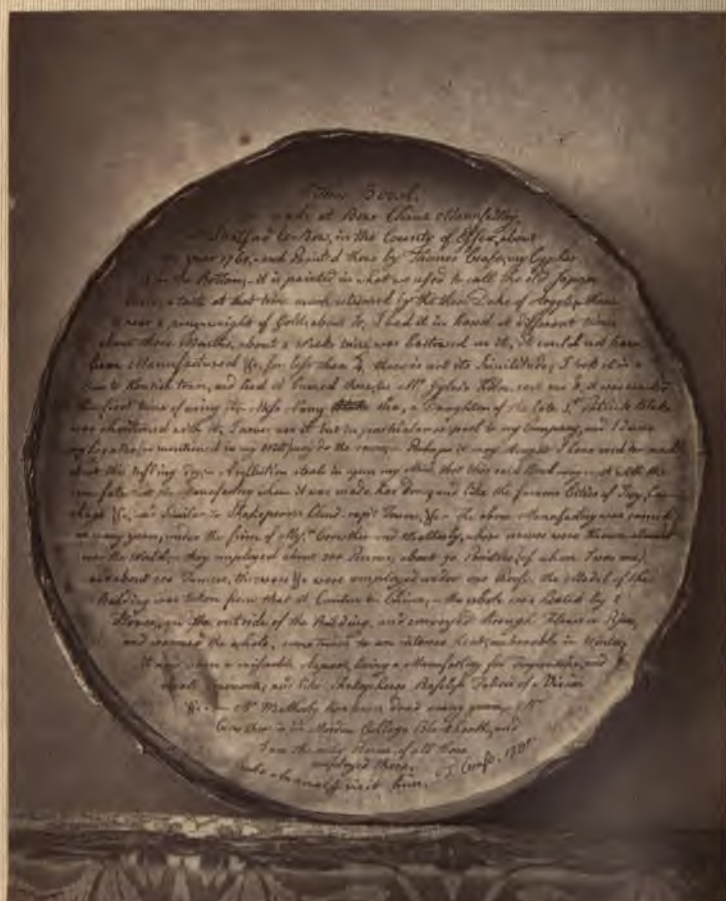 This Bowl.
made at Bow China Manufactory,
Stratford Le Bow, in the County of Essex, about
year 1760, and Painted there by Thomas Craft, my Cypher
in the Bottom, it is painted in what we used to call the old Japan
taste, a taste at that time much esteemed by the then Duke of Argyle, there
near 2 pennyweight of Gold, about 15s, I had it in hand at different times
about three Months, about 2 weeks time was bestowed on it, it could not have
been Manufactured &c, for less than £4, there is not its Similitude, I took it in a
to Kentish town, and had it burned there in Mr. Gyles's Kiln, cost me 3s, it was cracked
the first time of using it, Miss Nancy Sha, a Daughter of the late Sr. Patrick Blake
was christened with it, I never use it but in particular respect to my Company, and I desire
my Legatee (as mentioned in my Will) may do the same, Perhaps it may thought I have said too much
about this trifling Toy, A reflection steals in upon my Mind, that this said Bowl may meet with the
same fate that the Manufactory where it was made has done, and like the famous Cities of Troy,
&c, and Similar to Shakespear's Cloud cap't Towers, &c. The above Manufactory was carried
on many years, under the firm of Messrs. Crowther and Weatherly, whose names were known almost
over the World, they employed about 300 Persons, about 90 Painters (of whom I was one)
and about 200 Turners, throwers &c were employed under one Roof, the Model of the
Building was taken from that at Canton in China, the whole was Heated by 2
Stoves, on the outside of the Building, and conveyed through Flews or Pipes,
and warmed the whole, sometimes to an intense heat, unbearable in Winter,
It now wears a miserable Aspect, being a Manufactory for Turpentine, and
small Tenements, and like Shakespears Baseless Fabric of a Vision
&c. Mr. Weatherly has been dead many years, Mr
Crowther is in Morden College Blackheath, and
I am the only Person of all those
employed there,
who annually visit him. T. Craft. 1790